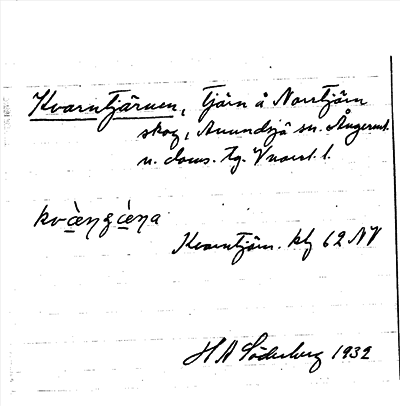 Kvarntjärnen, tjärn å Norrtjärn
skog, Anundsjö sn. Ångerml.
n. doms. tg. V norrl. l.
Kvarntjärn. kbl 62 NV
H A Söderberg 1932